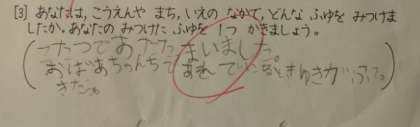 [3] あなたは,こうえんや まち,いえの なかで,どんな ふゆを みつけま
したか。あなたの みつけた ふゆを 1つ かきましょう。
あたたまいました
おばあちゃんちで あそんでいるときゆきがふって
きた。